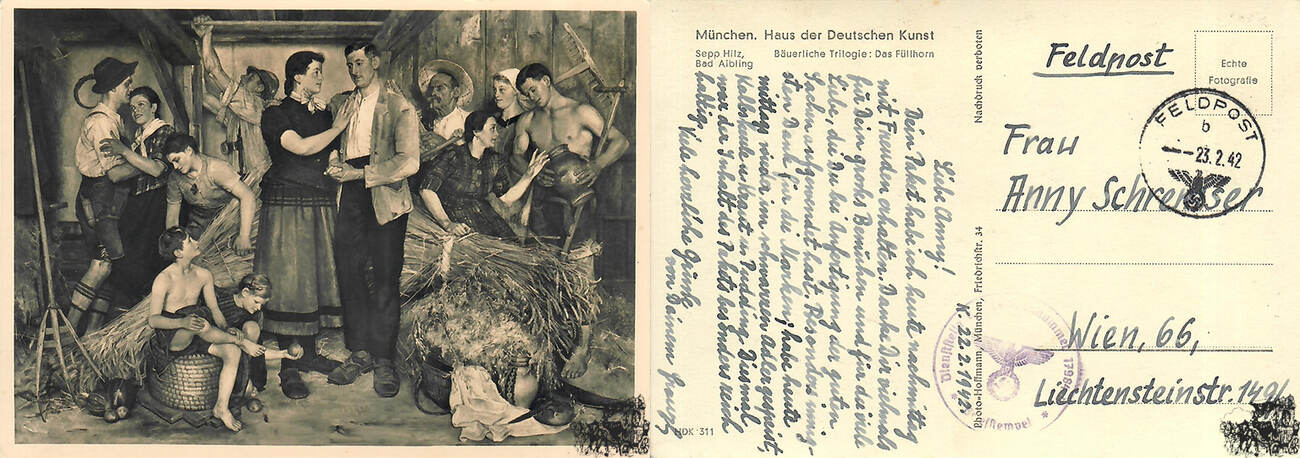 München. Haus der Deutschen Kunst
Sepp Hilz, Bäuerliche Trilogie: Das Füllhorn
Bad Aibling
Liebe Anny!
Dein Paket habe ich heute nachmittag
mit Freuden erhalten. Danke Dir vielmals
für Dein großes Bemühen und für die viele
Liebe, die Du bei der guten
Sachen aufgewendt hast. Besonders innig-
sten Dank für die Marken; habe heute
mittag wieder im schwarzen Adler gespeist,
Kraut u. Pudding. Diesmal
war der Inhalt des Pakets besonders reich-
haltig. Viele herzliche Grüße
von Deinem
22.2.1942
HDK 311
Nachdruck verboten
Photo-Hoffmann, München, Friedrichstr. 34
Feldpost
Echte
Fotografie
FELDPOST
b
23.2.42
Frau
Anny
Wien, 66,
Liechtensteinstr.